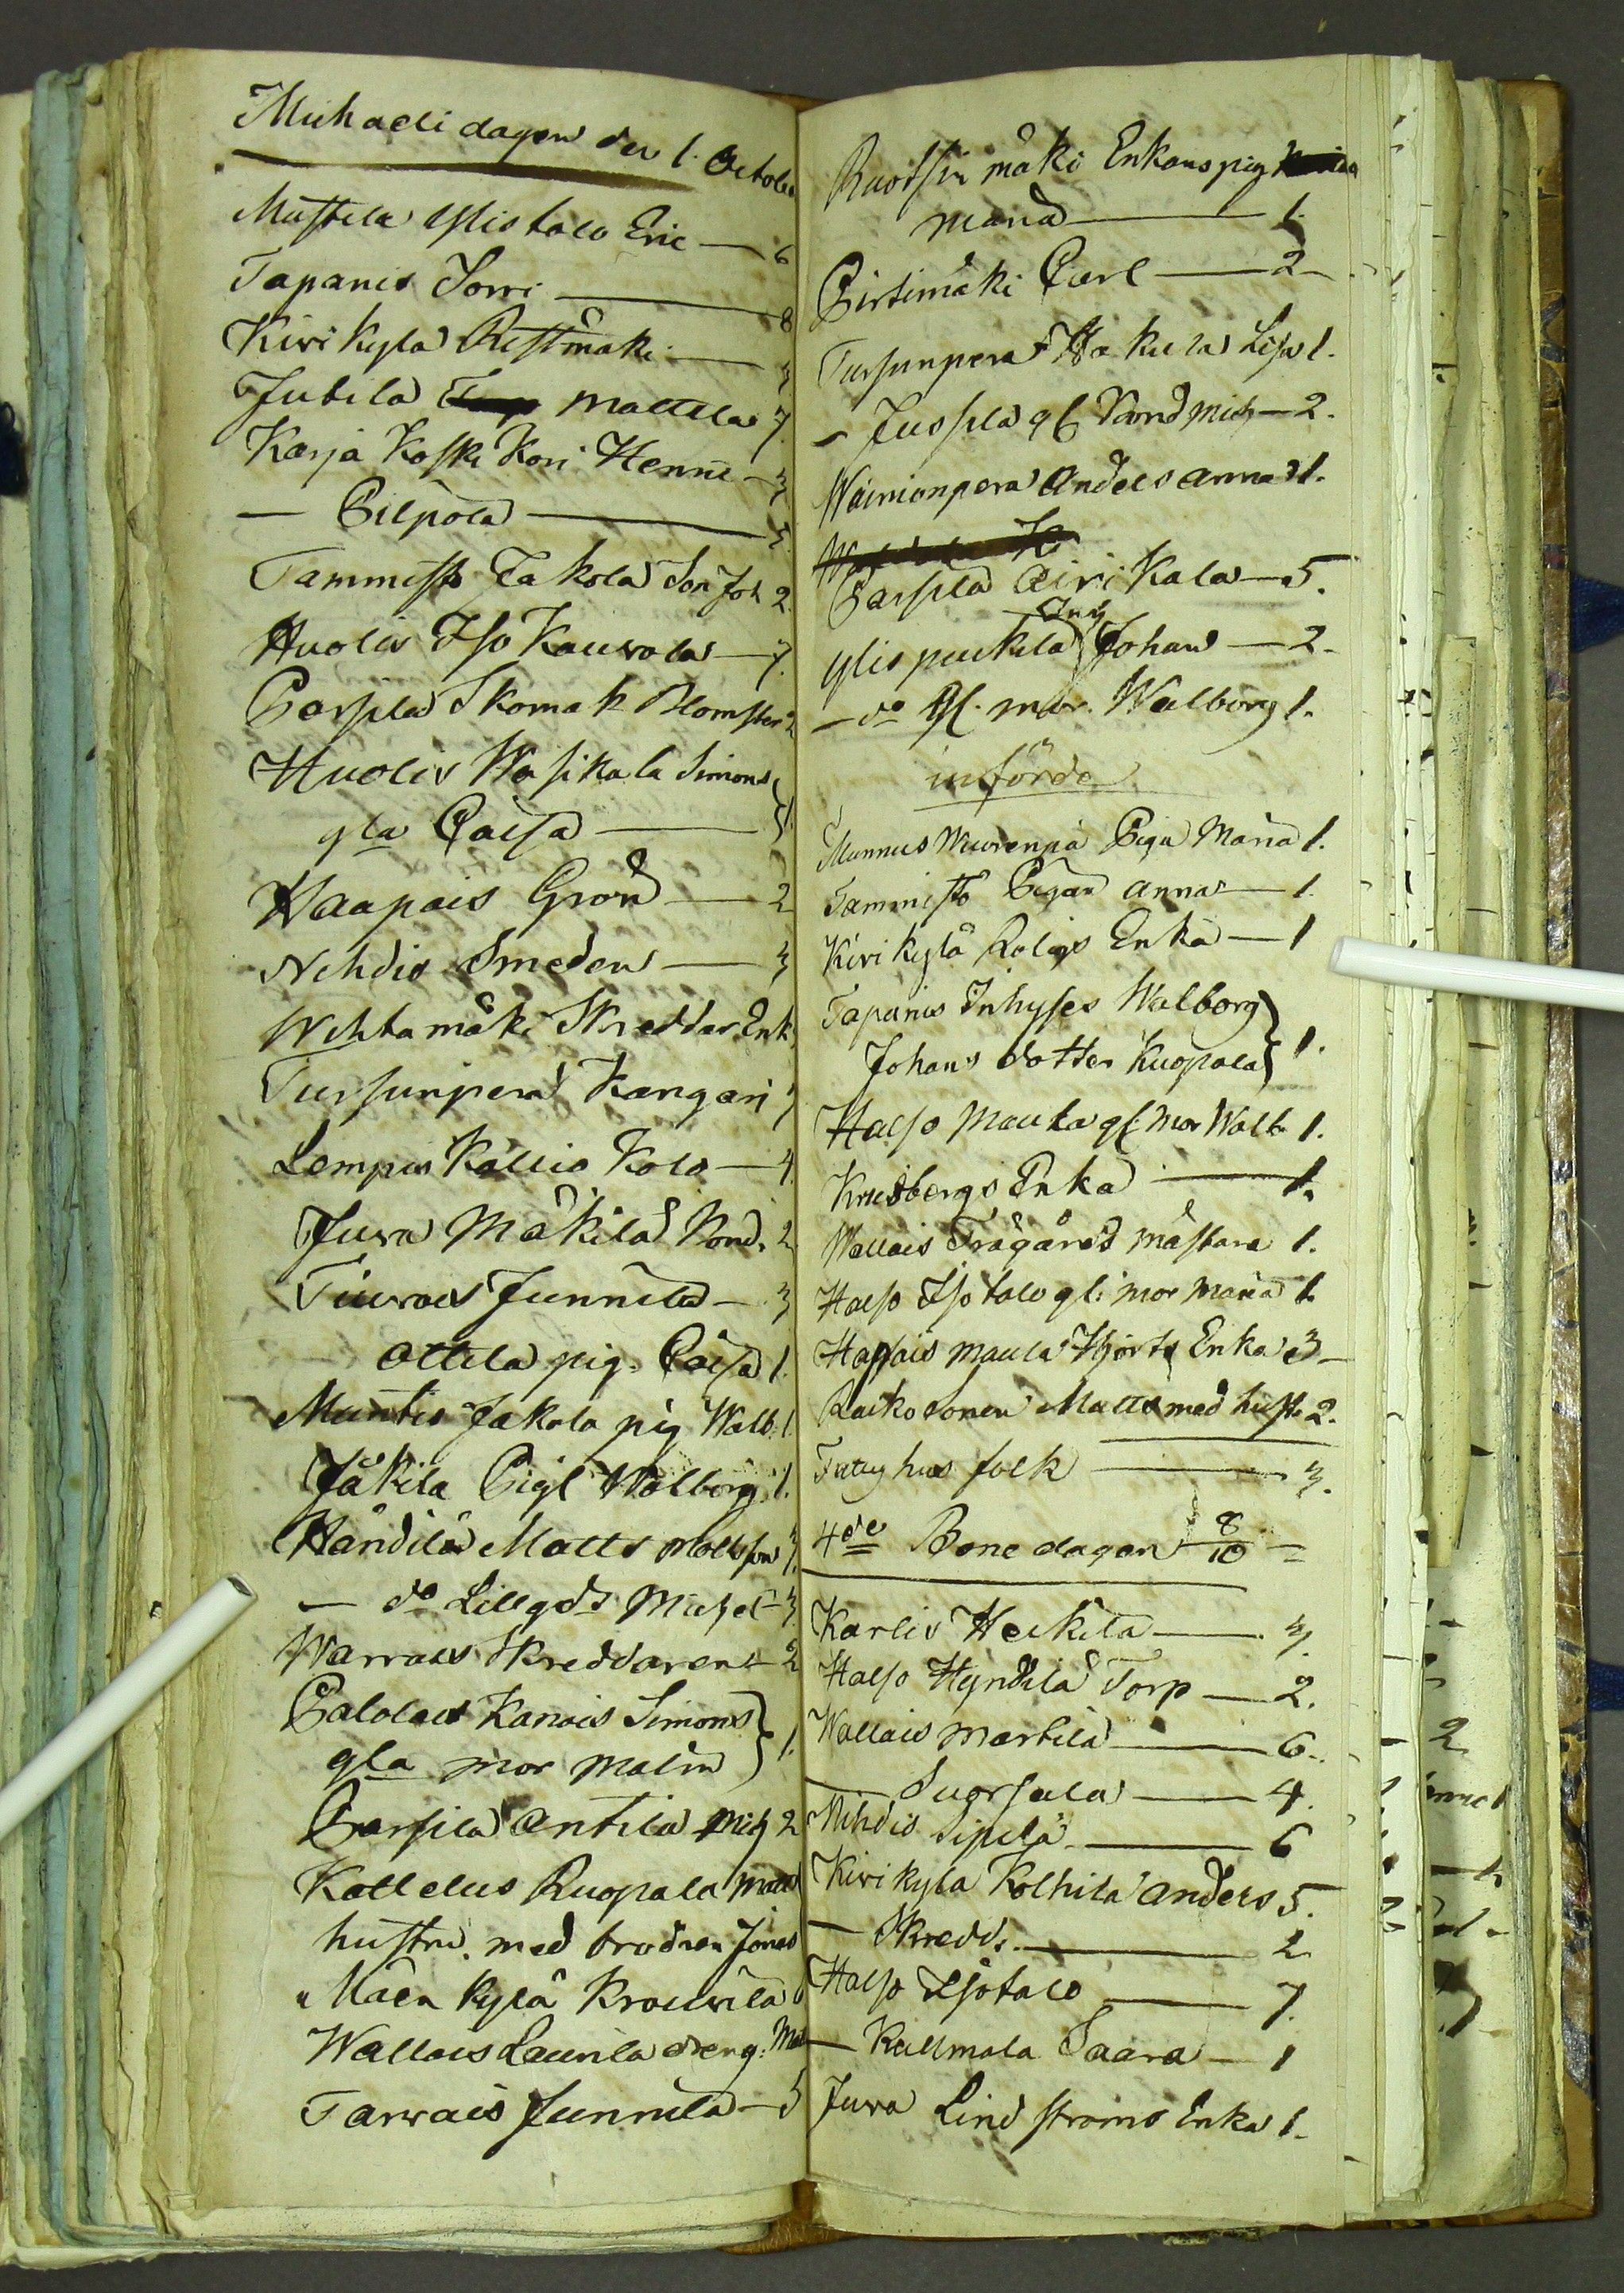 Michaeli dagen den 1. October
Mustila Ylistalo Eric — 6
Tapanis Sorri — 8
Kirikylä Ristmäki — 3
Jutila Mattila 7
Karja Koski Kori Henric — 3
— Pilpola — 3
Tammisto Jakola Son Joh 2
Huolis Iso Kauvola — 7
Parsila Skomak Blomster 2
Huolis Wasikala Simons
gla Caisa — 1
Haapais Grön — 2
Nihdis Smeden — 3
Wihtamäki Skreddar Enk
Tursunperä Kangari 3
Lempis Kallio Kolo — 4
Juva Mäkilä Bond. 2
Tiurais Junnila — 3
Ottila pig. Caisa 1.
Muntis Jakola pig Walb. 1
Jäkilä Pigl Walborg 1.
Händilä Matts Mattsson 3
— do Lillgds Michel — 3
Warrais Skreddaren — 2
Palolais Kanais Simons
gla mor Malin } 1.
Parsila Antila Mich 2
Kallelus Ruopala Matts
hustru. med brodren Jonas
Mäen kylä Krouvila 6
Wallais Launila dreng. Mat
Tarvais Junnila — 5
Ruotsin mäki Enkans pig
maria — 1.
Pirtimäki Carl — 2 —
Tursunperä Hakula Lisa 1.
— Jussila gl bond Mich — 2.
Wäinionperä Anders anna 1.
Parsila Äiri Kala — 5.
Ylis puckila Inh Johan — 2 —
— do gl. mor. Walborg 1.
införde
Munnus Wuorenpä Piga Maria 1.
Tammisto Pigan anna — 1.
Kirikylä Roligs Enka — 1
Tapanis Inhyses Walborg
Johans dotter Kuopala } 1.
Halso Maula gl. mor Walb. 1.
Krusbergs Enka — 1.
Wallais Trägårds mästare 1.
Halso Iso talo gl: mor maria 1.
Happais Maula Hjorts Enka 3 —
Raiko sonen Matts med hust. 2.
Fattighus folk — 3.
4de Bone dagen 8/10 —
Karlis Heikilä — 3.
Halso Hyndilä Torp — 2.
Wallais Martila — 6.
— Suorsala — 4.
Nihdis Sipilä — 6
Kirikylä Kolhila anders 5.
— Skredd. — 2
Halso Isotalo — 7.
— Kallmala Saara — 1
Juva Lindströms Enka 1.